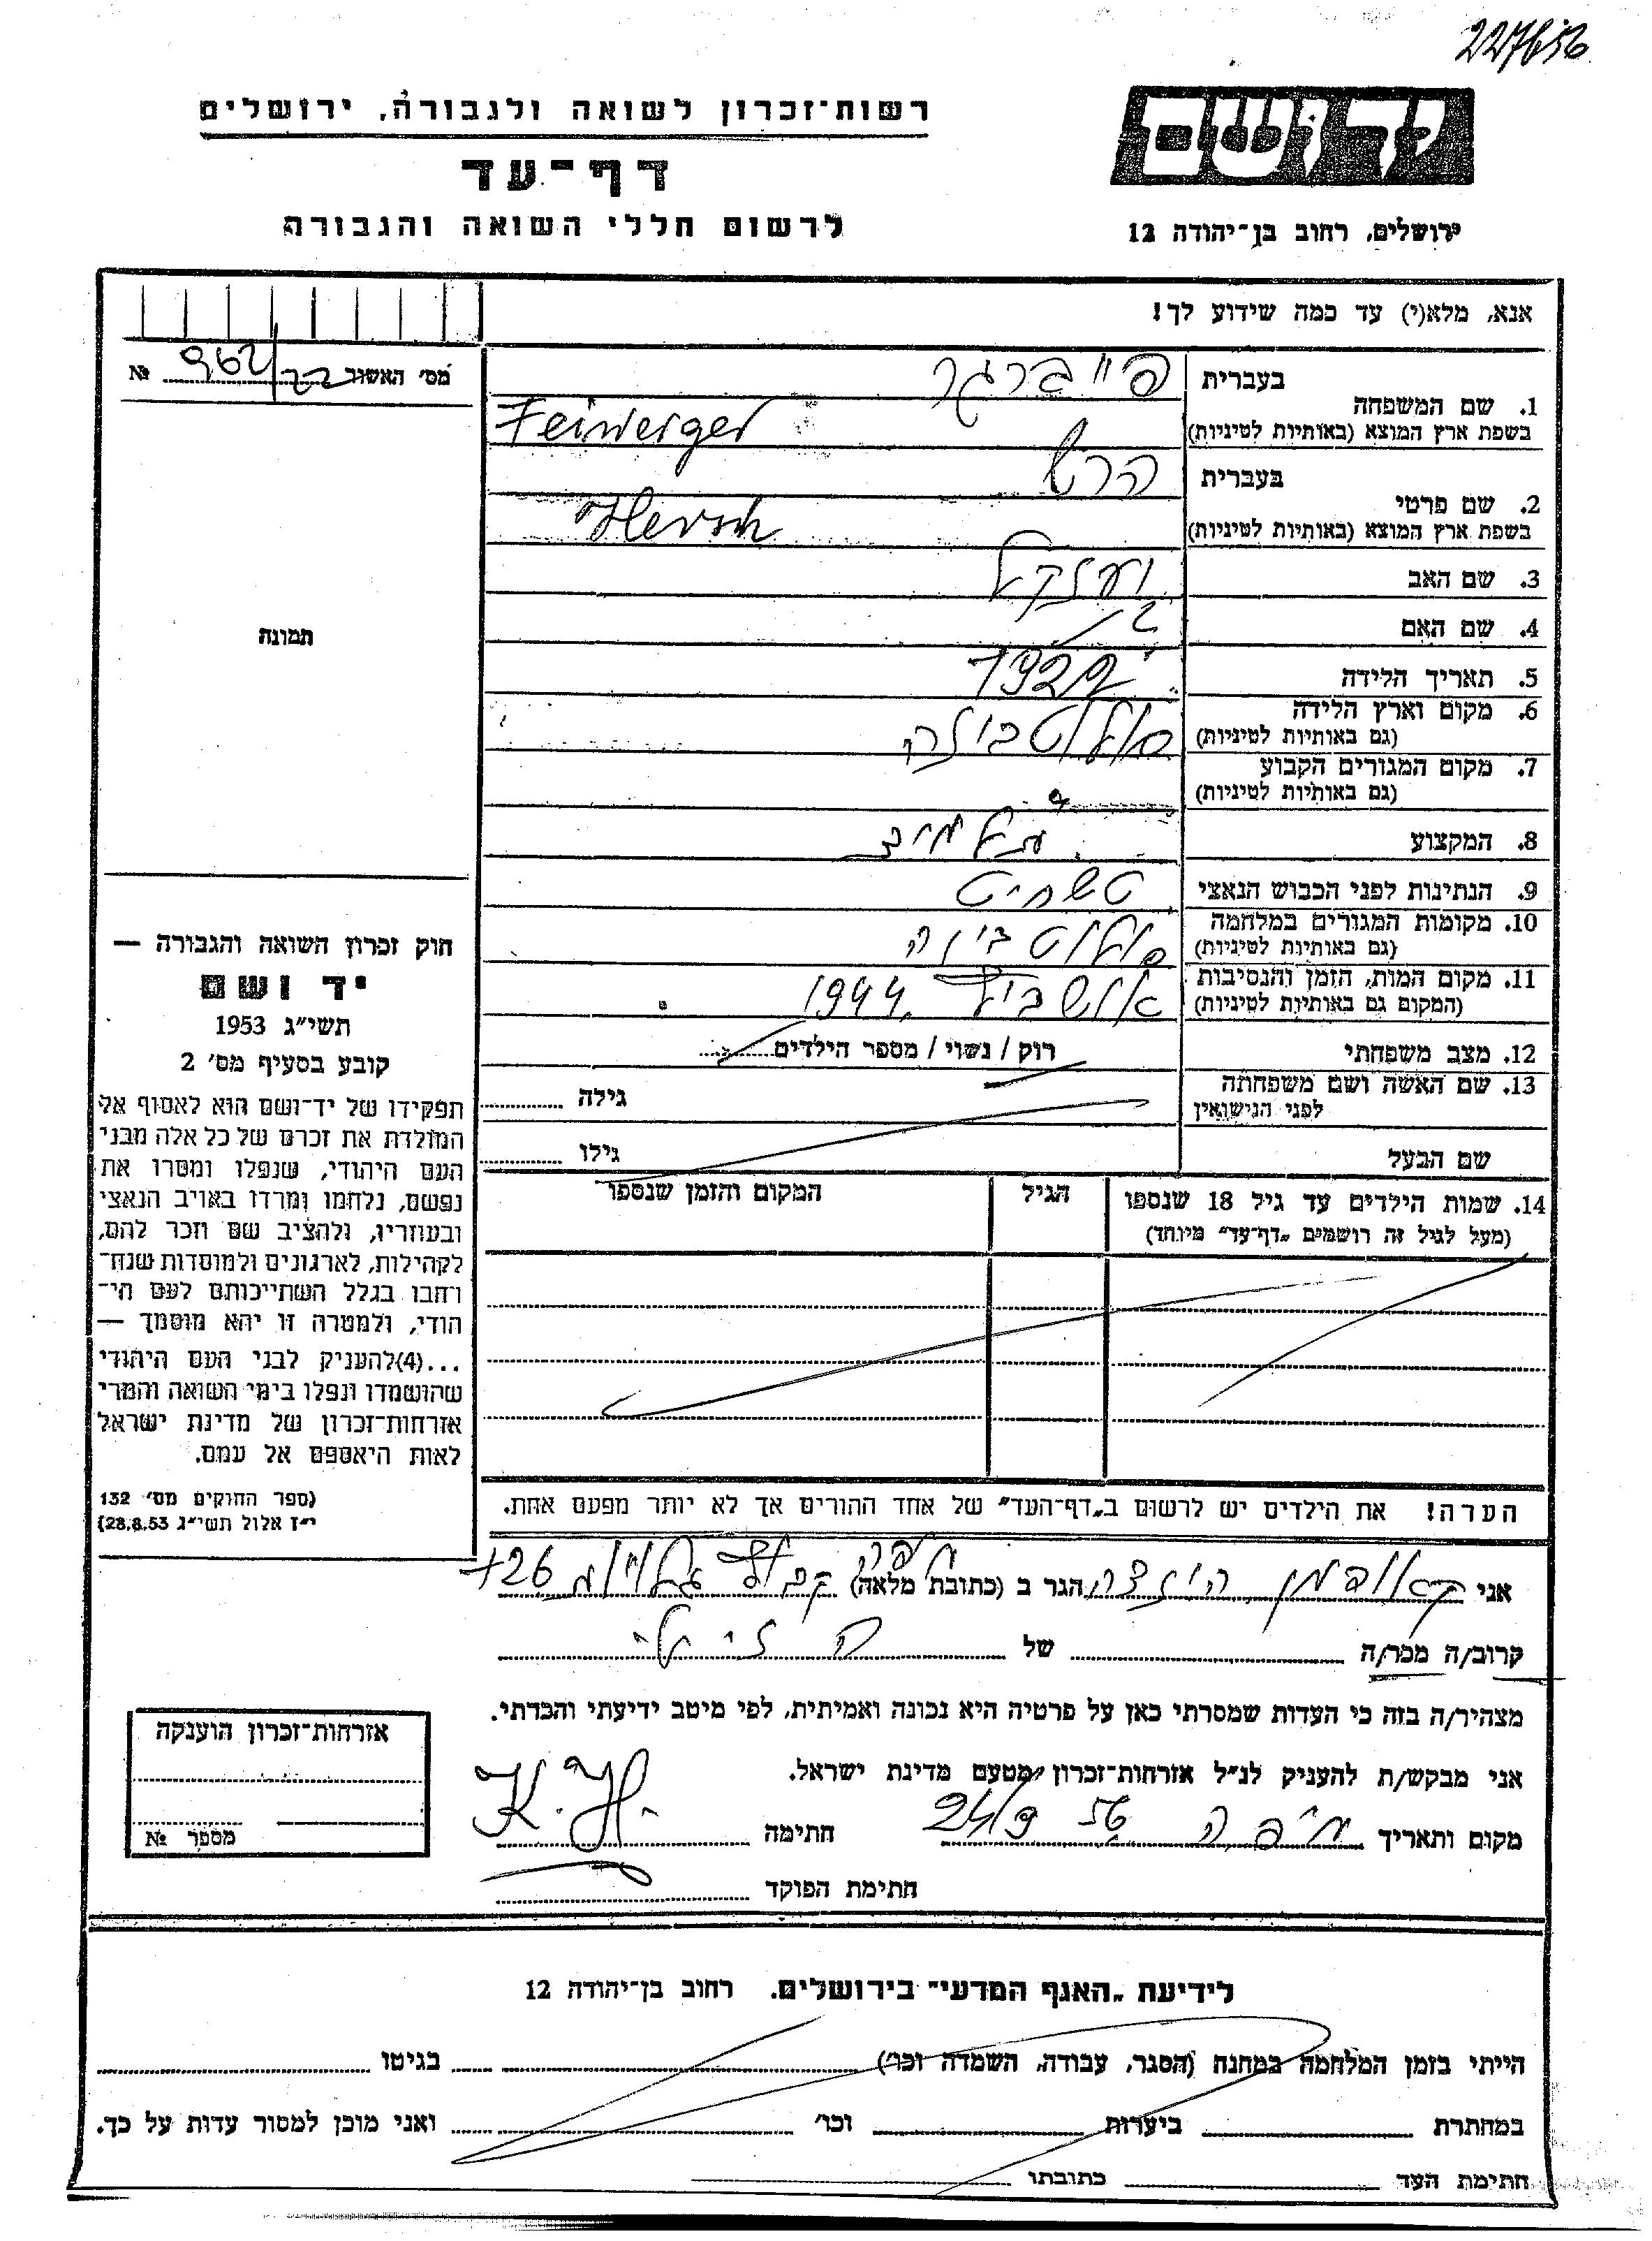 227656
רשות־זכרון לשואה ולגבורה, ירושלים
דף־עד
לרשום חללי השואה והגבורה
יד ושם
ירושלים, רחוב בן־יהודה 12
אנא, מלא(י) עד כמה שידוע לך!
מס׳ האשור 962/22 №
תמונה
בעברית פייברגר
1. שם המשפחה
בשפת ארץ המוצא (באותיות לטיניות) Feiwerger
בעברית הרש
2. שם פרטי
בשפת ארץ המוצא (באותיות לטיניות) Hersch
3. שם האב יחזקל
4. שם האם
5. תאריך הלידה
6. מקום וארץ הלידה
(גם באותיות לטיניות)
7. מקום המגורים הקבוע
(גם באותיות לטיניות)
8. המקצוע
9. הנתינות לפני הכבוש הנאצי
10. מקומות המגורים במלחמה
(גם באותיות לטיניות)
11. מקום המות, הזמן והנסיבות אושביץ 1944
(המקום גם באותיות לטיניות)
12. מצב משפחתי רוק / נשוי / מספר הילדים
13. שם האשה ושם משפחתה
לפני הנישואין
גילה
שם הבעל גילו
14. שמות הילדים עד גיל 18 שנספו הגיל המקום והזמן שנספו
(מעל לגיל זה רושמים „דף־עד״ מיוחד)
חוק זכרון השואה והגבורה —
יד ושם
תשי״ג 1953
קובע בסעיף מס׳ 2
תפקידו של יד־ושם הוא לאסוף אל
המולדת את זכרם של כל אלה מבני
העם היהודי, שנפלו ומסרו את
נפשם, נלחמו ומרדו באויב הנאצי
ובעוזריו, ולהציב שם וזכר להם,
לקהילות, לארגונים ולמוסדות שנח־
רחבו בגלל השתייכותם לעם הי־
הודי, ולמטרה זו יהא מוסמך —
...(4)להעניק לבני העם היהודי
שהושמדו ונפלו בימי השואה והמרי
אזרחות־זכרון של מדינת ישראל
לאות היאספם אל עמם.
(ספר החוקים מס׳ 132
י״ז אלול תשי״ג 28.8.53)
הערה! את הילדים יש לרשום ב„דף־העד״ של אחד ההורים אך לא יותר מפעם אחת.
אני קאופמן הינצה הגר ב (כתובת מלאה) חיפה 126
קרוב/ה מכר/ה של
מצהיר/ה בזה כי העדות שמסרתי כאן על פרטיה היא נכונה ואמיתית, לפי מיטב ידיעתי והכרתי.
אני מבקש/ת להעניק לנ״ל אזרחות־זכרון מטעם מדינת ישראל.
מקום ותאריך חיפה חתימה K. H.
חתימת הפוקד
אזרחות־זכרון הוענקה
מספר №
לידיעת „האגף המדעי״ בירושלים. רחוב בן־יהודה 12
הייתי בזמן המלחמה במחנה (הסגר, עבודה, השמדה וכו׳) בגיטו
במחתרת ביערות וכו׳ ואני מוכן למסור עדות על כך.
חתימת העד כתובתו